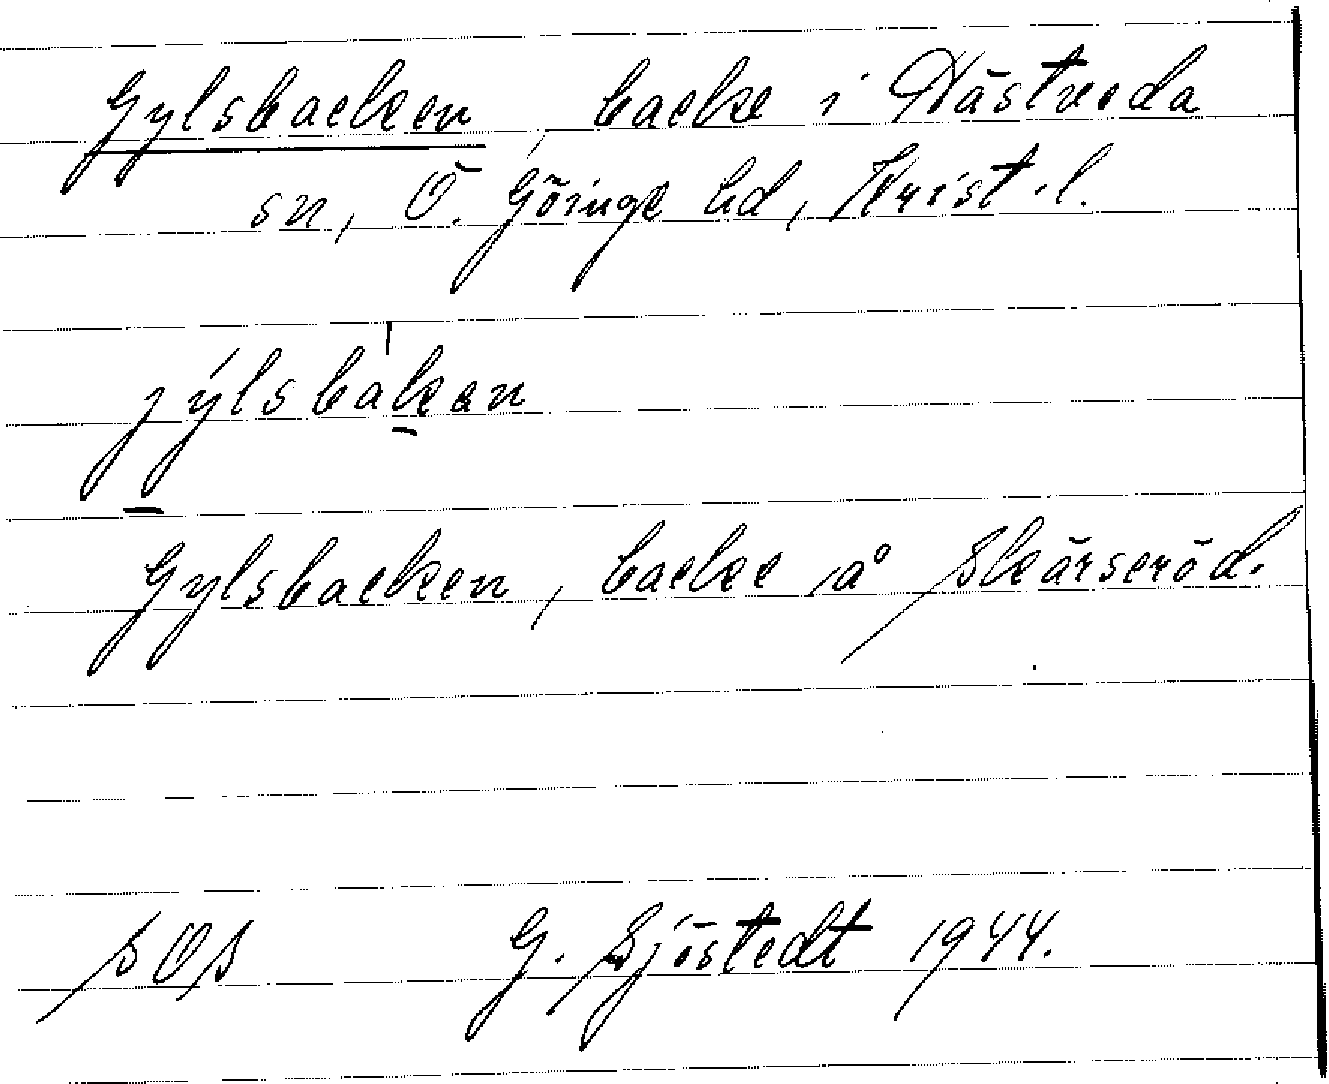 Gylsbacken, backe i Hästveda
sn, Ö. Göinge hd, Krist.l.
jýlsbàkan
Gylsbacken, backe på Skärseröd.
SOS G. Sjöstedt 1944.